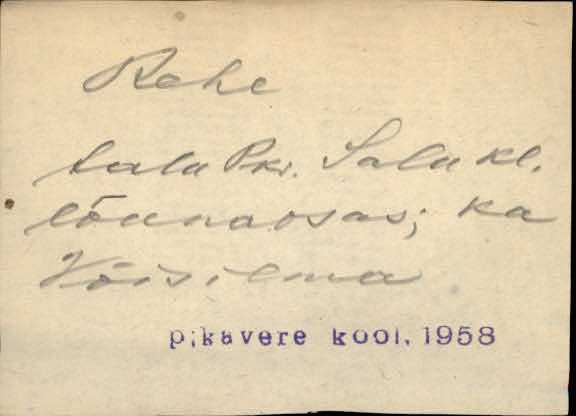 Rehe
talu Pkv. Salu kl.
lõunaosas; ka
Võisilma
pikavere kool, 1958